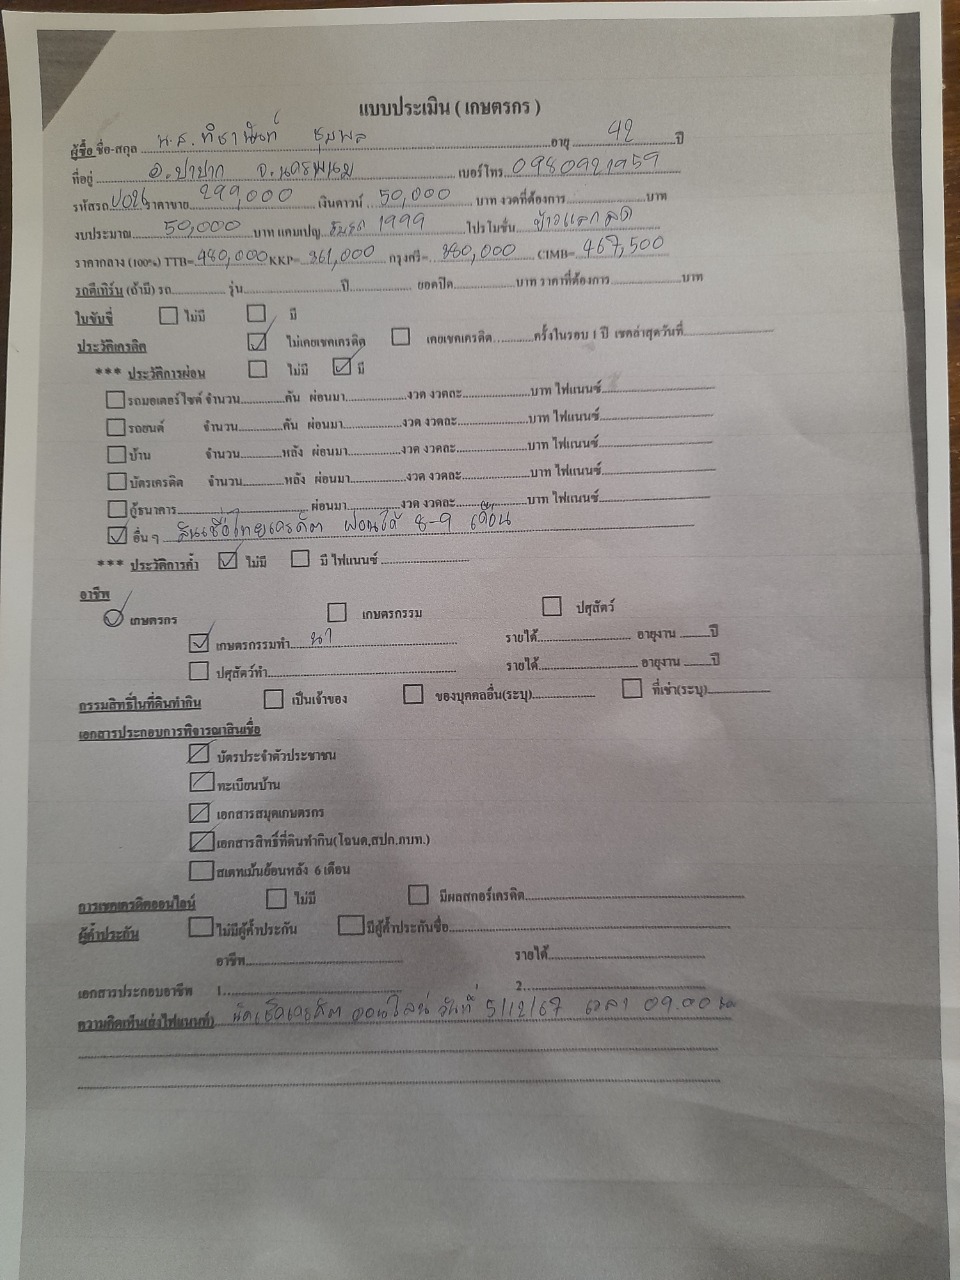 แบบประเมิน ( เกษตรกร )
ผู้ซื้อ ชื่อ-สกุล น.ส. ชุมพล อายุ 42 ปี
ที่อยู่ อ.ปาปาก จ.นครพนม เบอร์โทร 0980921959
รหัสรถ U026 ราคาขาย 299,000 เงินดาวน์ 50,000 บาท งวดที่ต้องการ บาท
งบประมาณ 50,000 บาท แคมเปญ 1999 โปรโมชั่น ป้าวแลกลด
ราคากลาง (100%) TTB= 480,000 KKP= 361,000 กรุงศรี= 380,000 CIMB= 467,500
รถตีเทิร์น (ถ้ามี) รถ รุ่น ปี ยอดปิด บาท ราคาที่ต้องการ บาท
ใบขับขี่ ไม่มี มี
ประวัติเครดิต ไม่เคยเชคเครดิต เคยเชคเครดิต ครั้งในรอบ 1 ปี เชคล่าสุดวันที่
*** ประวัติการผ่อน ไม่มี มี
รถมอเตอร์ไซค์ จำนวน คัน ผ่อนมา งวด งวดละ บาท ไฟแนนซ์
รถยนต์ จำนวน คัน ผ่อนมา งวด งวดละ บาท ไฟแนนซ์
บ้าน จำนวน หลัง ผ่อนมา งวด งวดละ บาท ไฟแนนซ์
บัตรเครดิต จำนวน หลัง ผ่อนมา งวด งวดละ บาท ไฟแนนซ์
กู้ธนาคาร ผ่อนมา งวด งวดละ บาท ไฟแนนซ์
อื่น ๆ สินเชื่อไทยเครดิต ผ่อนได้ 8-9 เดือน
*** ประวัติการค้ำ ไม่มี มี ไฟแนนซ์
อาชีพ
เกษตรกร เกษตรกรรม ปศุสัตว์
เกษตรกรรมทำ นา รายได้ อายุงาน ปี
ปศุสัตว์ทำ รายได้ อายุงาน ปี
กรรมสิทธิ์ในที่ดินทำกิน เป็นเจ้าของ ของบุคคลอื่น(ระบุ) ที่เช่า(ระบุ)
เอกสารประกอบการพิจารณาสินเชื่อ
บัตรประจำตัวประชาชน
ทะเบียนบ้าน
เอกสารสมุดเกษตรกร
เอกสารสิทธิ์ที่ดินทำกิน(โฉนด,สปก.ภบท.)
สเตทเม้นย้อนหลัง 6 เดือน
การเชคเครดิตออนไลน์ ไม่มี มีผลสกอร์เครดิต
ผู้ค้ำประกัน ไม่มีผู้ค้ำประกัน มีผู้ค้ำประกันชื่อ
อาชีพ รายได้
เอกสารประกอบอาชีพ 1. 2.
ความคิดเห็น(ส่งไฟแนนท์) นัดเช็คเครดิต ออนไลน์ วันที่ 5/12/67 เวลา 09.00 น.